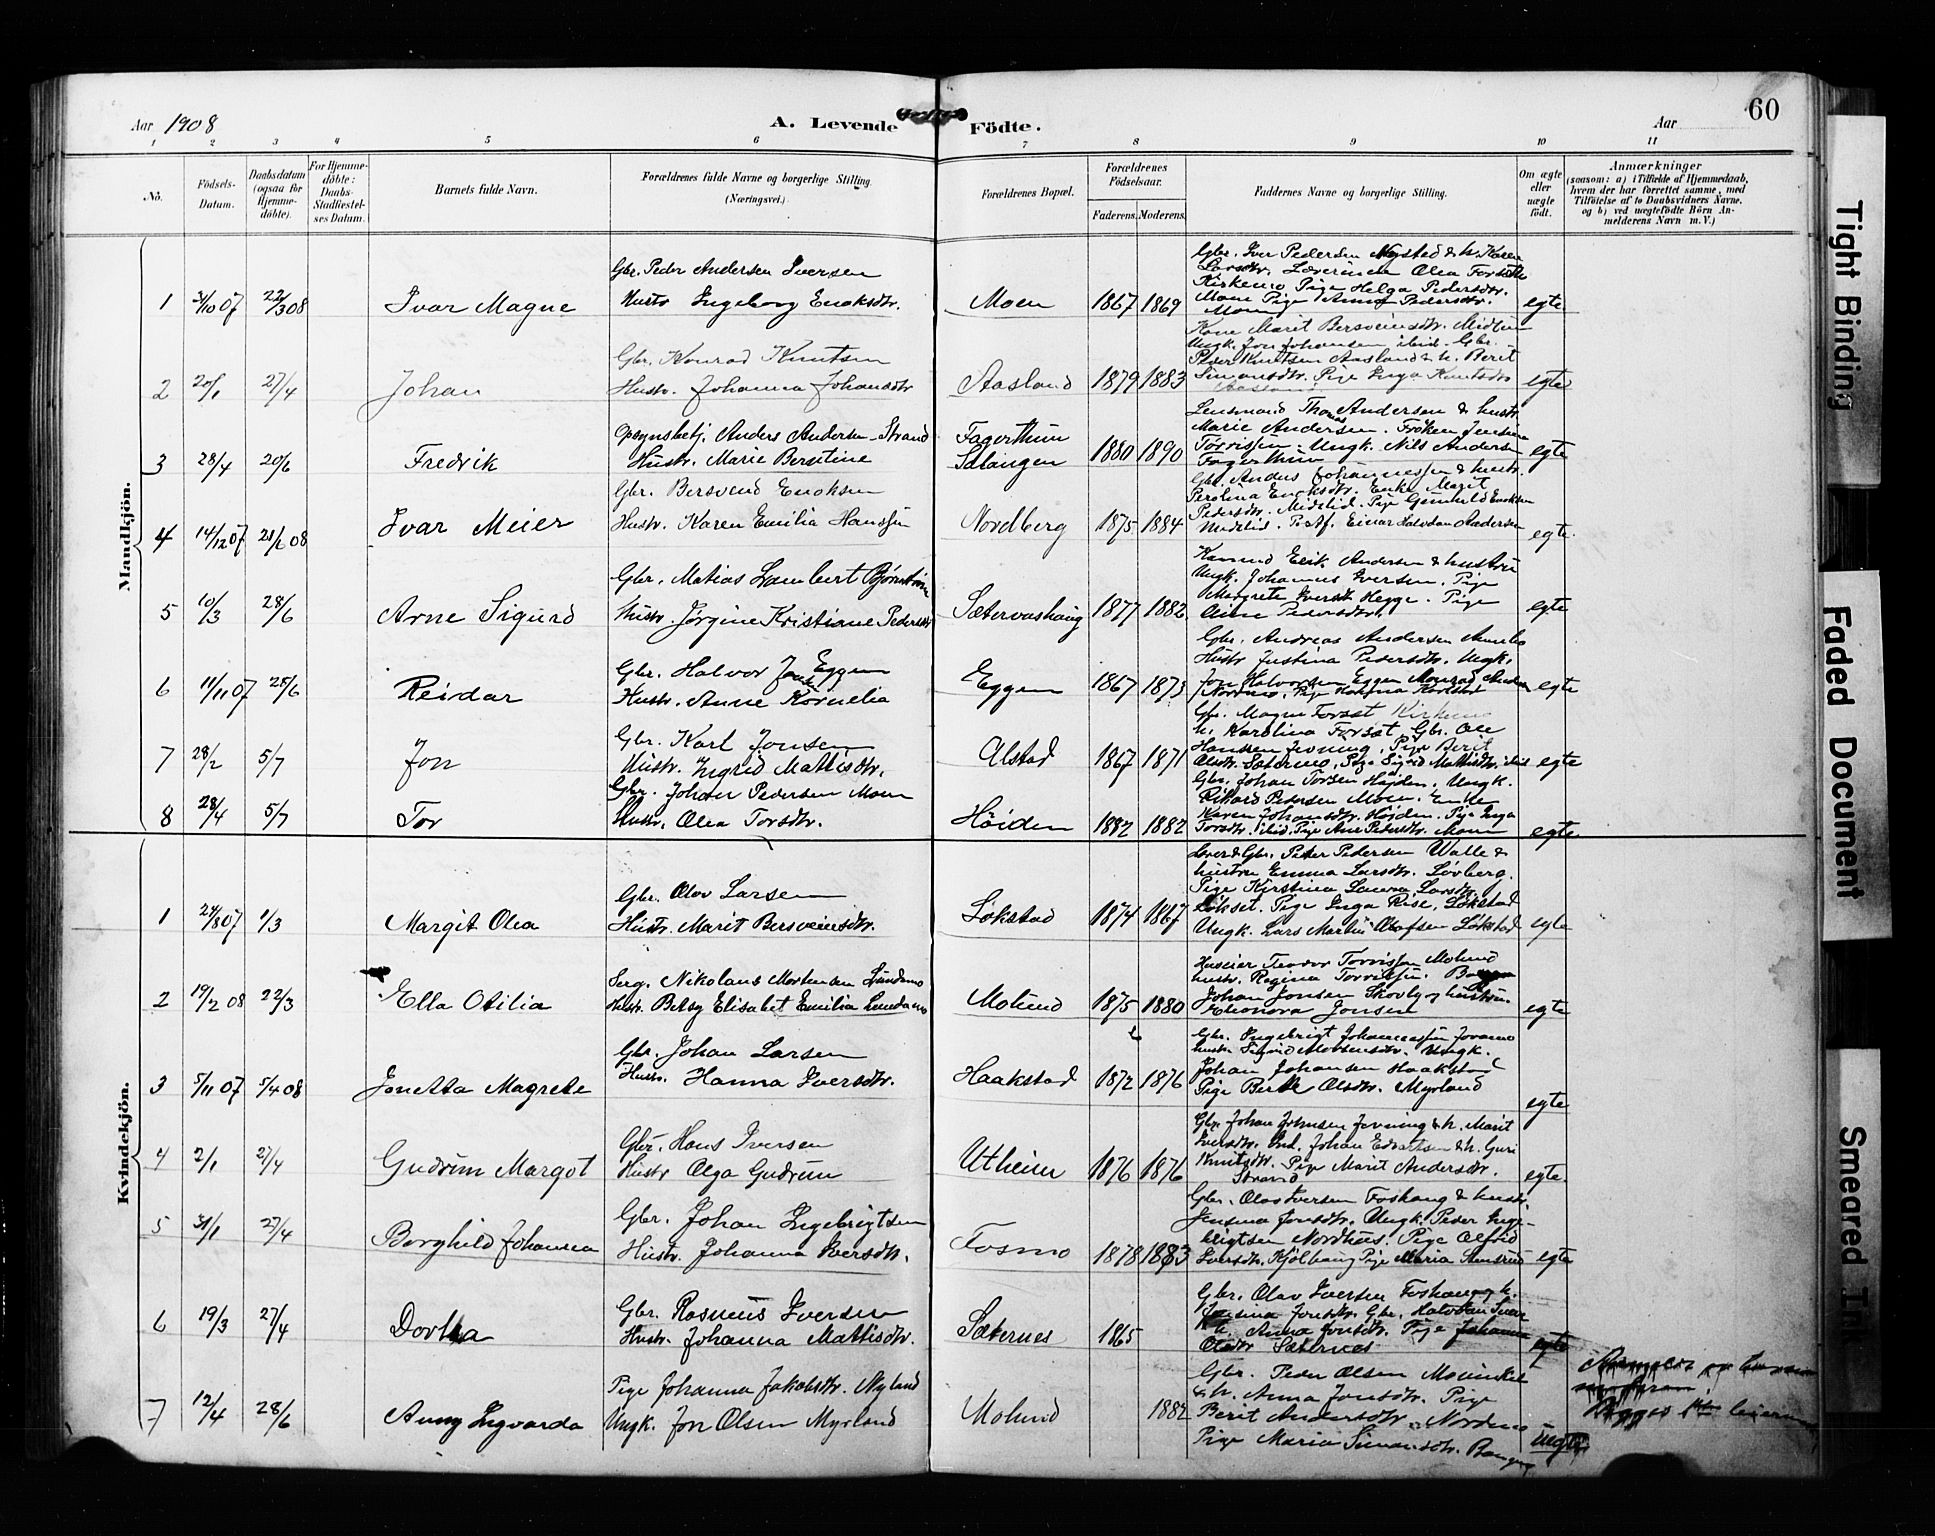 Aar 1908
A. Levende
Födte.
Aar
60
1 2 3 4 5 6 7 8 9 10 11
No.
Födsels-
Datum.
Daabsdatum
(ogsaa for
Hjemme-
döbte).
For Hjemme-
döbte:
Daabs-
Stadfæstel-
ses Datum.
Barnets fulde Navn.
Forældrenes fulde Navne og borgerlige Stilling.
(Næringsvei.)
Forældrenes Bopæl.
Forældrenes
Födselsaar.
Faderens. Moderens.
Faddernes Navne og borgerlige Stilling.
Om ægte
eller
uægte
födt.
Anmærkninger
(saasom: a) i Tilfælde af Hjemmedaab,
hvem der har forrettet samme, med
Tilföielse af to Daabsvidners Navne.
og b) ved uægtefödte Börn An-
melderens Navn m. V.)
Mandkjön.
1 31/10 07 22/3 08 Ivar Magne
Gbr. Peder Andersen Iversen
Hustr Ingeborg Enoksdtr.
Moen 1867 1869
Gbr. Iver Pedersen Nystad & h. Karen
Larsdtr. Lærerinde Olea Forseth
Kirkemo Pige Helga Pedersdtr.
Moen Pige Anna Pedersdtr.
Moen
egte
2 20/1 27/4 Johan
Gbr. Konrad Knutsen
Hustr. Johanna Johansdtr
Aasland 1879 1883
Kone Marit Bersveinsdtr. Midlien
Ungk. Jon Johansen ibid. Gbr.
Peder Knutsen Aasland & h. Berit
Simonsdtr. Pige Inga Knutsdtr
Aasland
egte
3 28/4 20/6 Fredrik
Opsynsbetj. Anders Andersen Strand
Hustr. Marie Bersitine
Fagerthun
Salangen
1880 1890
Lensmand Thomas Andersen & hustr.
Marie Andersen. Frøken Jensine
Torrissen. Ungk. Nils Andersen
Fagerthun
egte
4 14/12 07 21/2 08 Ivar Meier
Gbr. Bersvend Enoksen
Hustr. Karen Emilia Hanssen
Nordberg 1875 1884
Gbr. Anders Johannessen & hustr.
Perolina Enoksdtr. Enke Marit
Pedersdtr. Midtlid. Pige Gunhild Enoksen
Midtlid. P. Af. Einar Halvdan Andersen
egte.
5 10/3 28/6 Arne Sigurd
Gbr. Matias Lambert Bjørnstrøm
Hustr. Jørgine Kristiane Pedersdtr
Sætervashaug 1877 1882
Kamud Erik Andersen & hustru
Ungk. Johannes Iversen. Pige
Margrete Iversdt Hegge. Pige
Aine Pedersdtr.
egte
6 11/11 07 25/6 Reidar
Gbr. Halvor Jonsen Eggen
Hustr. Anne Kornelia
Eggen 1867 1873
Gbr. Andreas Andersen Annebo
Hustr Justina Pedersdtr. Ungk.
Jon Halvorsen Eggen
egte
7 28/2 5/7 Jon
Gbr. Karl Jonsen
Hustr. Ingrid Mattisdtr.
Alstad 1867 1871
Gbr. Magne Forsæt Kirkemo
h. Karolina Forsæt. Gbr. Ole
Hanssen Jevning. Pige Berit
Olsdtr. Sætermo, Pige Sigrid Mathisdtr. ibid
egte
8 28/4 5/7 Tor
Gbr. Johan Pedersen Moen
Hustr. Olea Torsdtr.
Höiden 1882 1882
Gbr. Johan Torsen Høiden. Ungk.
Rikard Pedersen Moen. Enke
Karen Johansdtr. Höiden. Pige Inga
Torsdtr. ibid. Pige Ane Pedersdtr. Moen
egte
Kvindekjön.
1 24/8 07 1/3 Margit Olea
Gbr. Olav Larsen
Hustr. Marit Bersveinsdtr.
Løkstad 1874 1867
Lærer & Gbr. Peter Pedersen Walle &
hustru Emma Larsdtr. Løvberg.
Pige Kirstina Laura Larsdtr.
Løkset. Pige Inga Rise, Løkstad
Ungk. Lars Martin Olafsen Løkstad
egte
2 19/2 08 22/3 Ella Otilia
Serg. Nikolaus Mortensen Lundamo
Hustr. Betsy Elisabet Emilia Lundamo
Molund 1875 1880
Huseier Teodor Torrissen Molund
hustr. Regina Torrissen.
Johan Jonsen Skovly og hustru
Eleonora Jonsen
egte
3 5/11 07 5/4 08 Jonetta Magrete
Gbr. Johan Larsen
Hustr. Hanna Iversdtr.
Haakstad 1872 1876
Gbr. Ingebrigt Johannessen Joramo
hustr Sigrid Mortensdtr. Ungk.
Johan Johansen Haakstad
Pige Berit Olsdtr. Myrland
egte
4 2/1 27/4 Gudrun Margot
Gbr. Hans Iversen
Hustr Olga Gudrun
Utheim 1876 1876
Gbr. Johan Johnsen Jevning & h. Marit
Iversdtr. Ind. Johan Edvartsen & h. Guri
Knutsdtr. Pige Marit Andersdtr.
Strand
egte
5 31/1 27/4 Borghild Johanna
Gbr. Johan Ingebrigtsen
Hustr. Johanna Iversdtr.
Fosmo 1878 1883
Gbr. Olav Iversen Foshaug & hustr
Jensina Jonsdtr. Ungk. Peder Inge-
brigtsen Nordhus. Pige Alfrid
Iversdtr. Kjölhaug Pige Maria Simsrud
egte
6 19/3 27/4 Dortea
Gbr. Rasmus Iversen
Hustr. Johanna Mattisdtr.
Sæternes 1865
Gbr. Olav Iversen Foshaug h.
Jensina Jonsdtr. Gbr. Halvdan
h. Anna Jonsdtr. Pige Johanna
Olsdtr Sæternes
egte
7 12/4 28/6 Anny Ingvarda
Pige Johanna Jakobsdtr. Nyland
Ungk. Jon Olsen Myrland
Molund 1882
Gbr. Peder Olsen Movinkel
& h. Anna Jonsdtr. Pige
Berit Andersdtr. Nordmo
Pige Maria Simonsdtr.
uegte
Tight Binding
Faded Document
Smeared